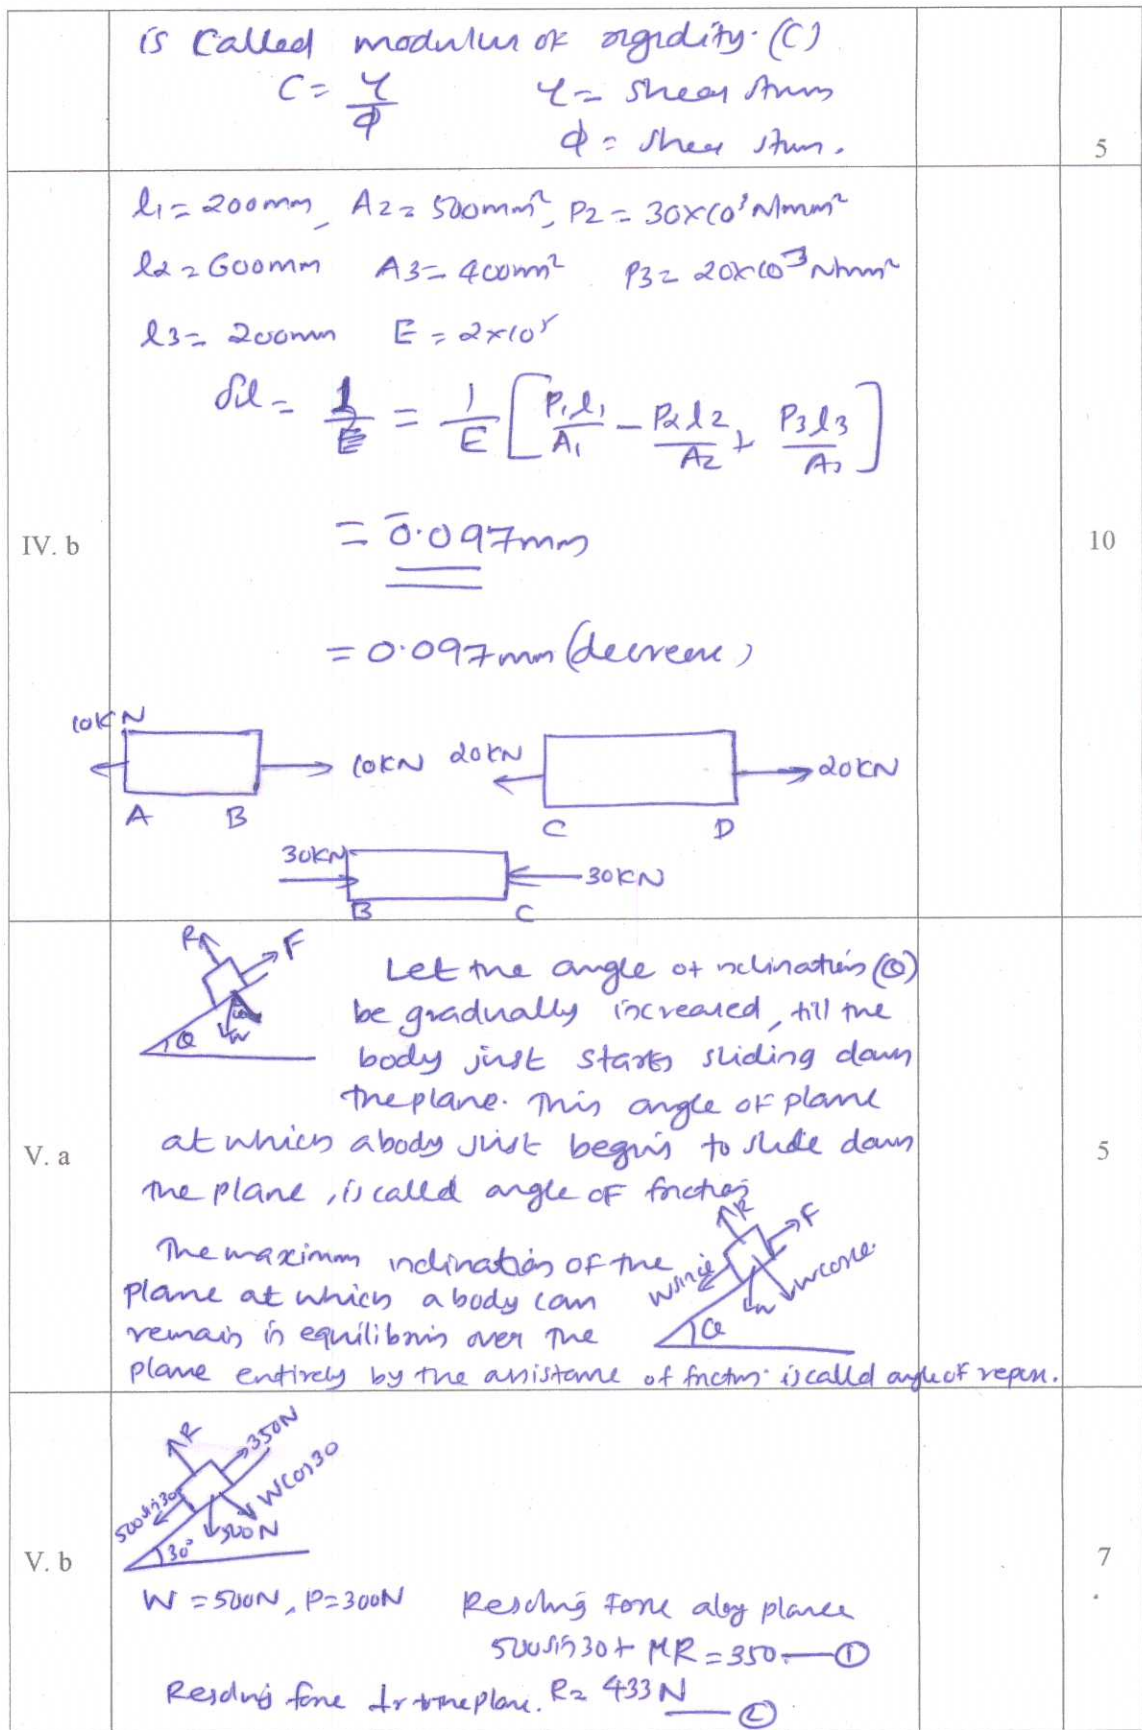 is called modulus of rigidity. (C)
C = τ/ϕ τ = shear stress
ϕ = shear strain. 5
l1 = 200mm, A2 = 500mm², P2 = 30×10³ N/mm²
l2 = 600mm A3 = 400mm² P3 = 20×10³ N/mm²
l3 = 200mm E = 2×10⁵
δl = 1/E = 1/E [P1l1/A1 - P2l2/A2 + P3l3/A3]
IV. b = -0.097mm 10
= 0.097mm (decrease)
10KN 10KN 20KN 20KN
A B C D
30KN 30KN
B C
R F
Let the angle of inclination (θ)
be gradually increased, till the
θ W body just starts sliding down
the plane. This angle of plane
V. a at which a body just begins to slide down 5
the plane, is called angle of friction
R F
The maximum inclination of the Wsinθ Wcosθ
plane at which a body can W
remain in equilibrium over the θ
plane entirely by the assistance of friction is called angle of repose.
R 350N
500sin30 Wcos30
500N
V. b 30° 7
W = 500N, P = 300N Resolving Force along planee
500sin30 + μR = 350 — ①
Resolving force ⊥r to the plane. R = 433N — ②